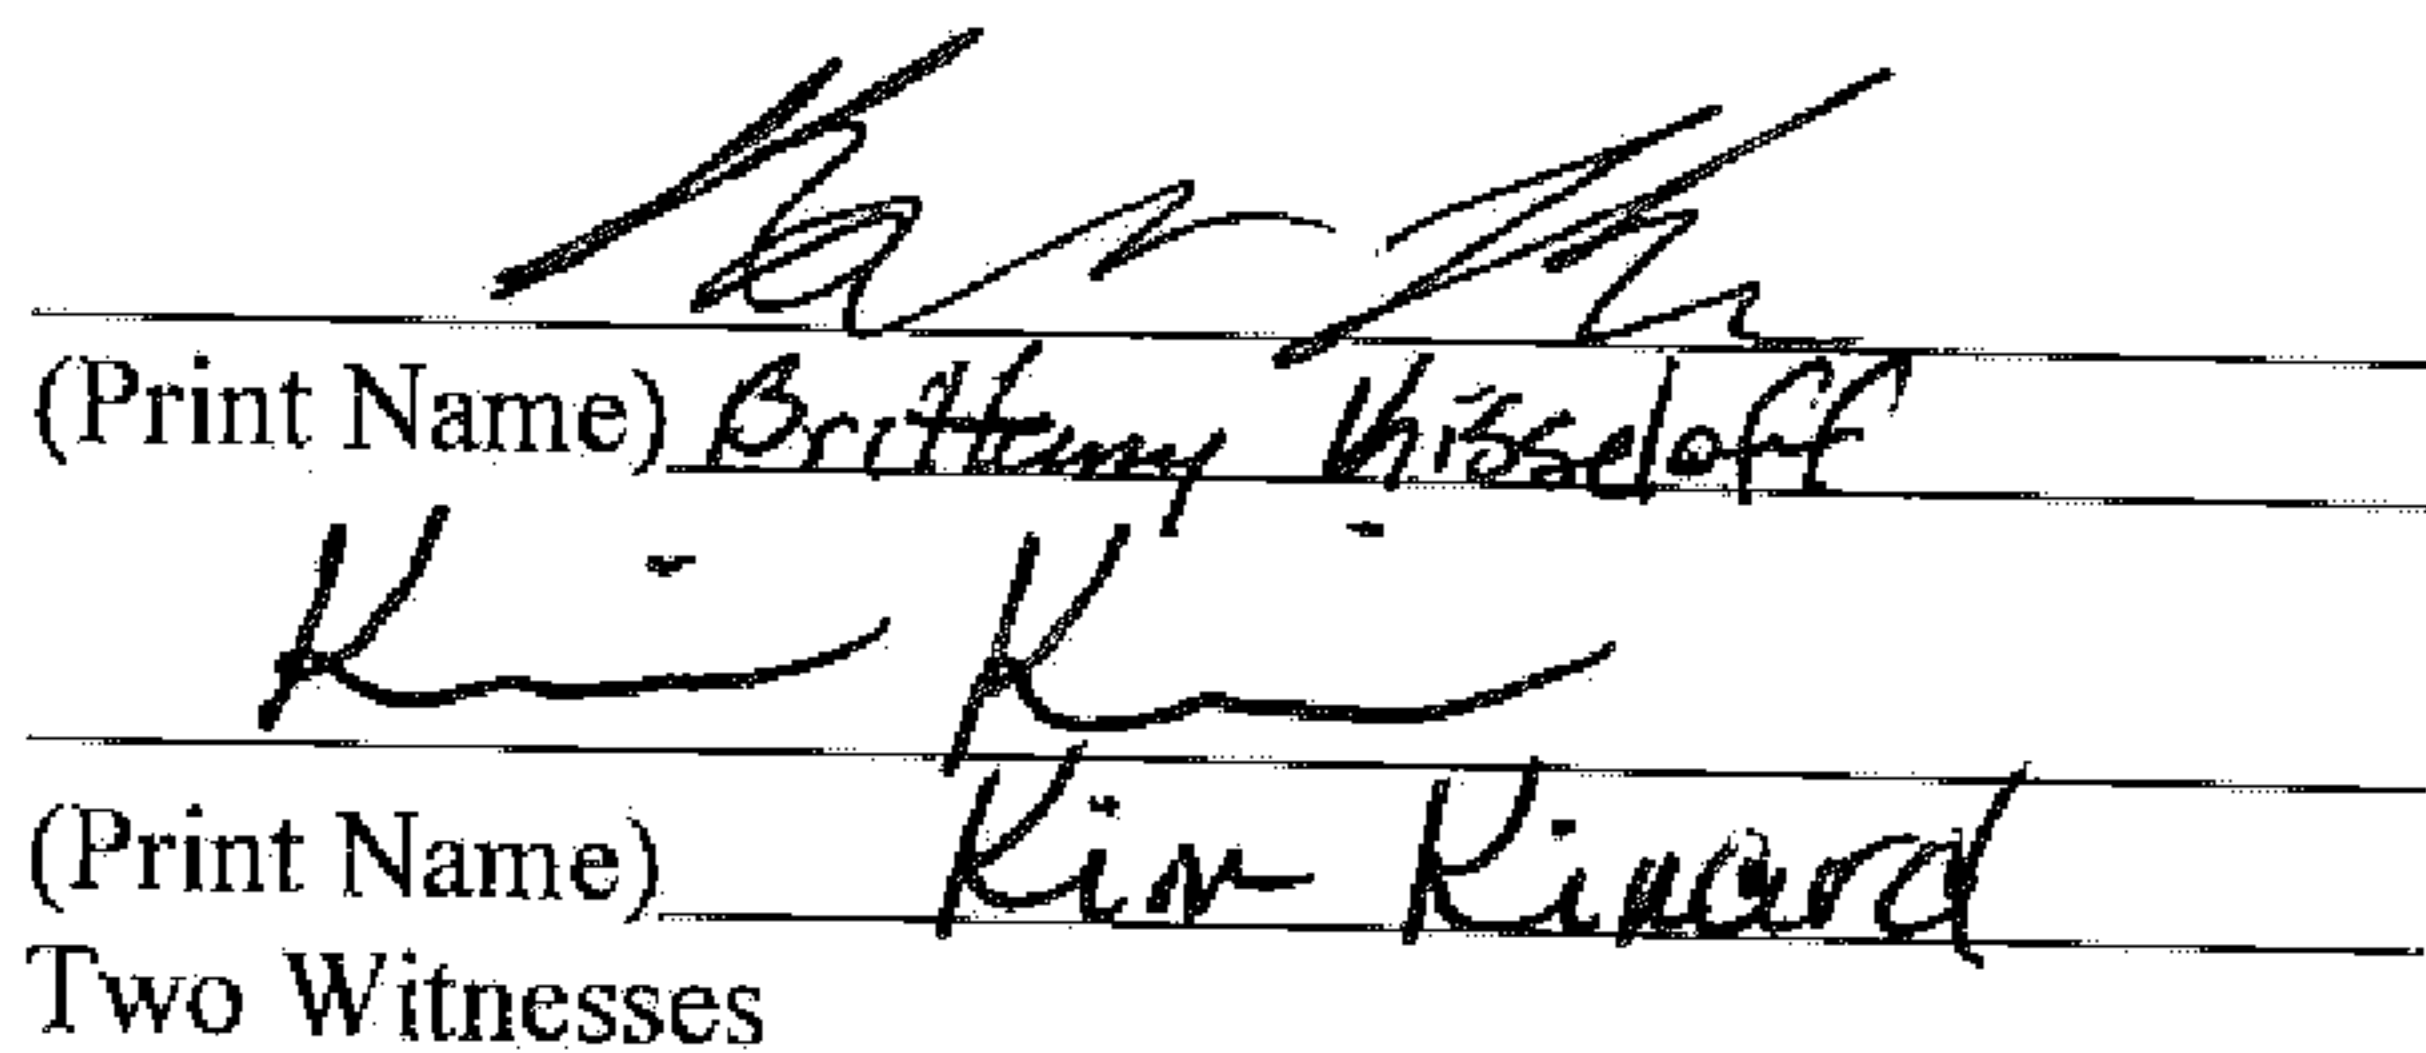 (Print Name) Brittany Kisseloff
(Print Name) Kim Kinard
Two Witnesses